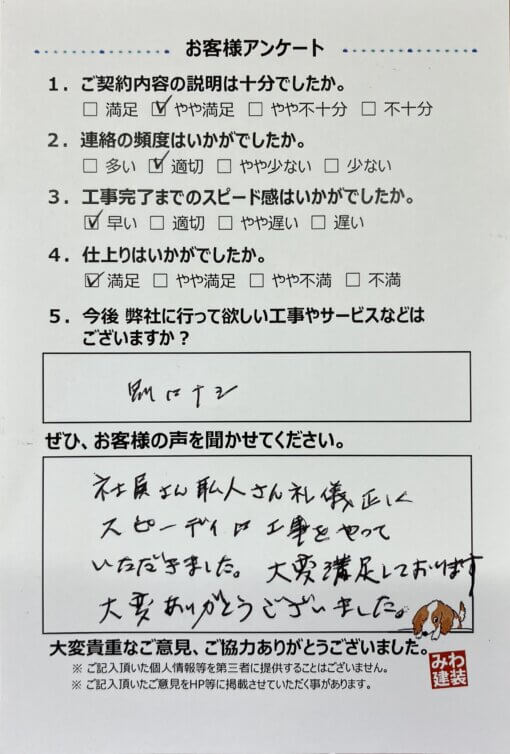 お客様アンケート
1. ご契約内容の説明は十分でしたか。
□ 満足 ☑ やや満足 □ やや不十分 □ 不十分
2. 連絡の頻度はいかがでしたか。
□ 多い ☑ 適切 □ やや少ない □ 少ない
3. 工事完了までのスピード感はいかがでしたか。
☑ 早い □ 適切 □ やや遅い □ 遅い
4. 仕上りはいかがでしたか。
☑ 満足 □ やや満足 □ やや不満 □ 不満
5. 今後 弊社に行って欲しい工事やサービスなどは
ございますか？
別にナシ
ぜひ、お客様の声を聞かせてください。
社員さん 職人さん 礼儀正しく
スピーディに工事をやって
いただきました。大変満足しております
大変ありがとうございました。
大変貴重なご意見、ご協力ありがとうございました。
※ ご記入頂いた個人情報等を第三者に提供することはございません。
※ ご記入頂いたご意見をHP等に掲載させていただく事があります。
みわ
建装